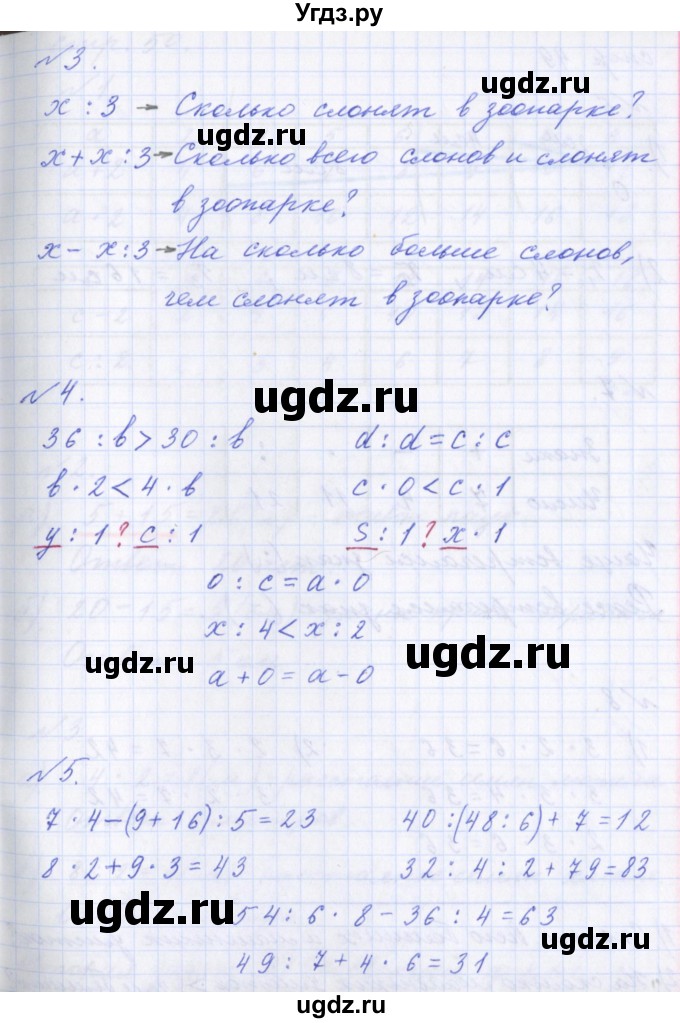 Угдз.ру
№3.
x : 3 → Сколько слонят в зоопарке?
x + x : 3 → Сколько всего слонов и слонят
в зоопарке?
x − x : 3 → На сколько больше слонов,
чем слонят в зоопарке?
№4.
36 : b > 30 : b d : d = c : c
b · 2 < 4 · b c · 0 < c : 1
y : 1 ? c : 1 S : 1 ? x · 1
0 : c = a · 0
x : 4 < x : 2
a + 0 = a − 0
№5.
7 · 4 − (9 + 16) : 5 = 23 40 : (48 : 6) + 7 = 12
8 · 2 + 9 · 3 = 43 32 : 4 : 2 + 79 = 83
54 : 6 · 8 − 36 : 4 = 63
49 : 7 + 4 · 6 = 31
ugdz.ru
ugdz.ru
ugdz.ru
ugdz.ru
ugdz.ru
ugdz.ru
ugdz.ru
ugdz.ru
ugdz.ru
ugdz.ru